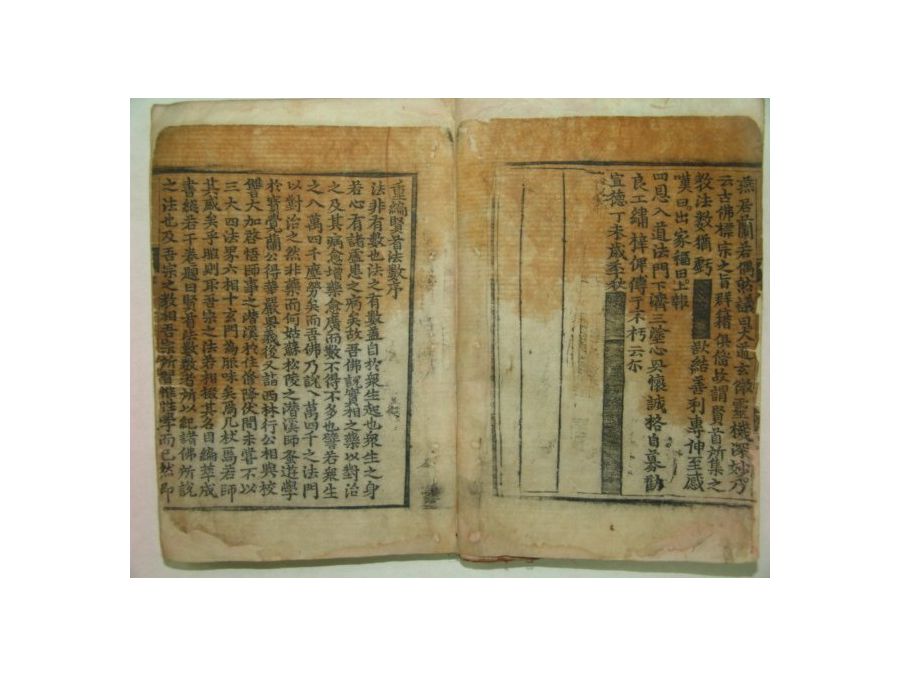 燕若蘭若偶爾議曰大道玄微靈機深妙乃
云古佛標宗之旨群籍俱偹故謂賢首所集之
教法數猶虧 歃結善利專伸至感
嘆曰出家福田上報
四恩入道法門下濟三塗心具懷誠格自募勸
良工繡梓俾傳于不朽云尒
宣德丁未歲季秋
重編賢首法數序
法非有數也法之有數蓋自於衆生起也衆生之身
若心有諸慮患之病矣故吾佛說實相之藥以對治
之及其病愈增藥愈廣而數不得不多也譬若衆生
之八萬四千塵勞矣而吾佛乃說八萬四千之法門
以對治之然非藥而何姑蘇松陵之潛溪師蚤遊學
於寳覺蘭公得華嚴奧義後又詣西林行公相與校
讐大加啓悟師事之潛溪於作偹降伏間未甞不以
三大四法界六相十玄門為脤味矣為几杖焉若師
其盛矣乎照則取吾宗之法若相掇其名目編萃成
書總若干卷題曰賢首法數數者所以紀諸佛所說
之法也及吾宗之教相吾宗所習惟性學而已然即